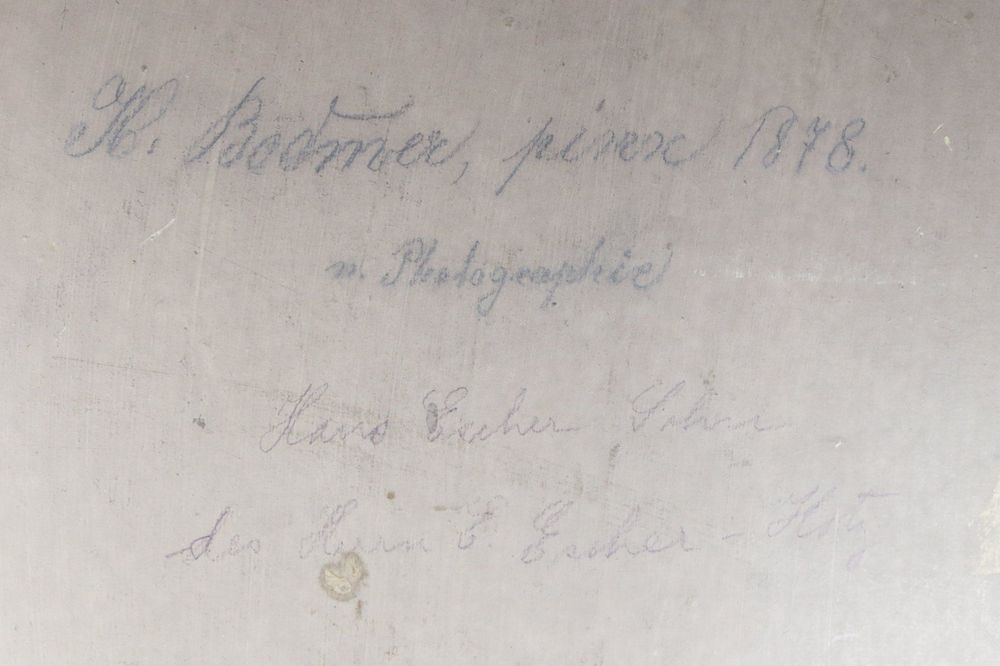 K. Bodmer, pinx 1878.
n. Photographie
Hans Escher Sohn
des Herrn C. Escher-Hotz